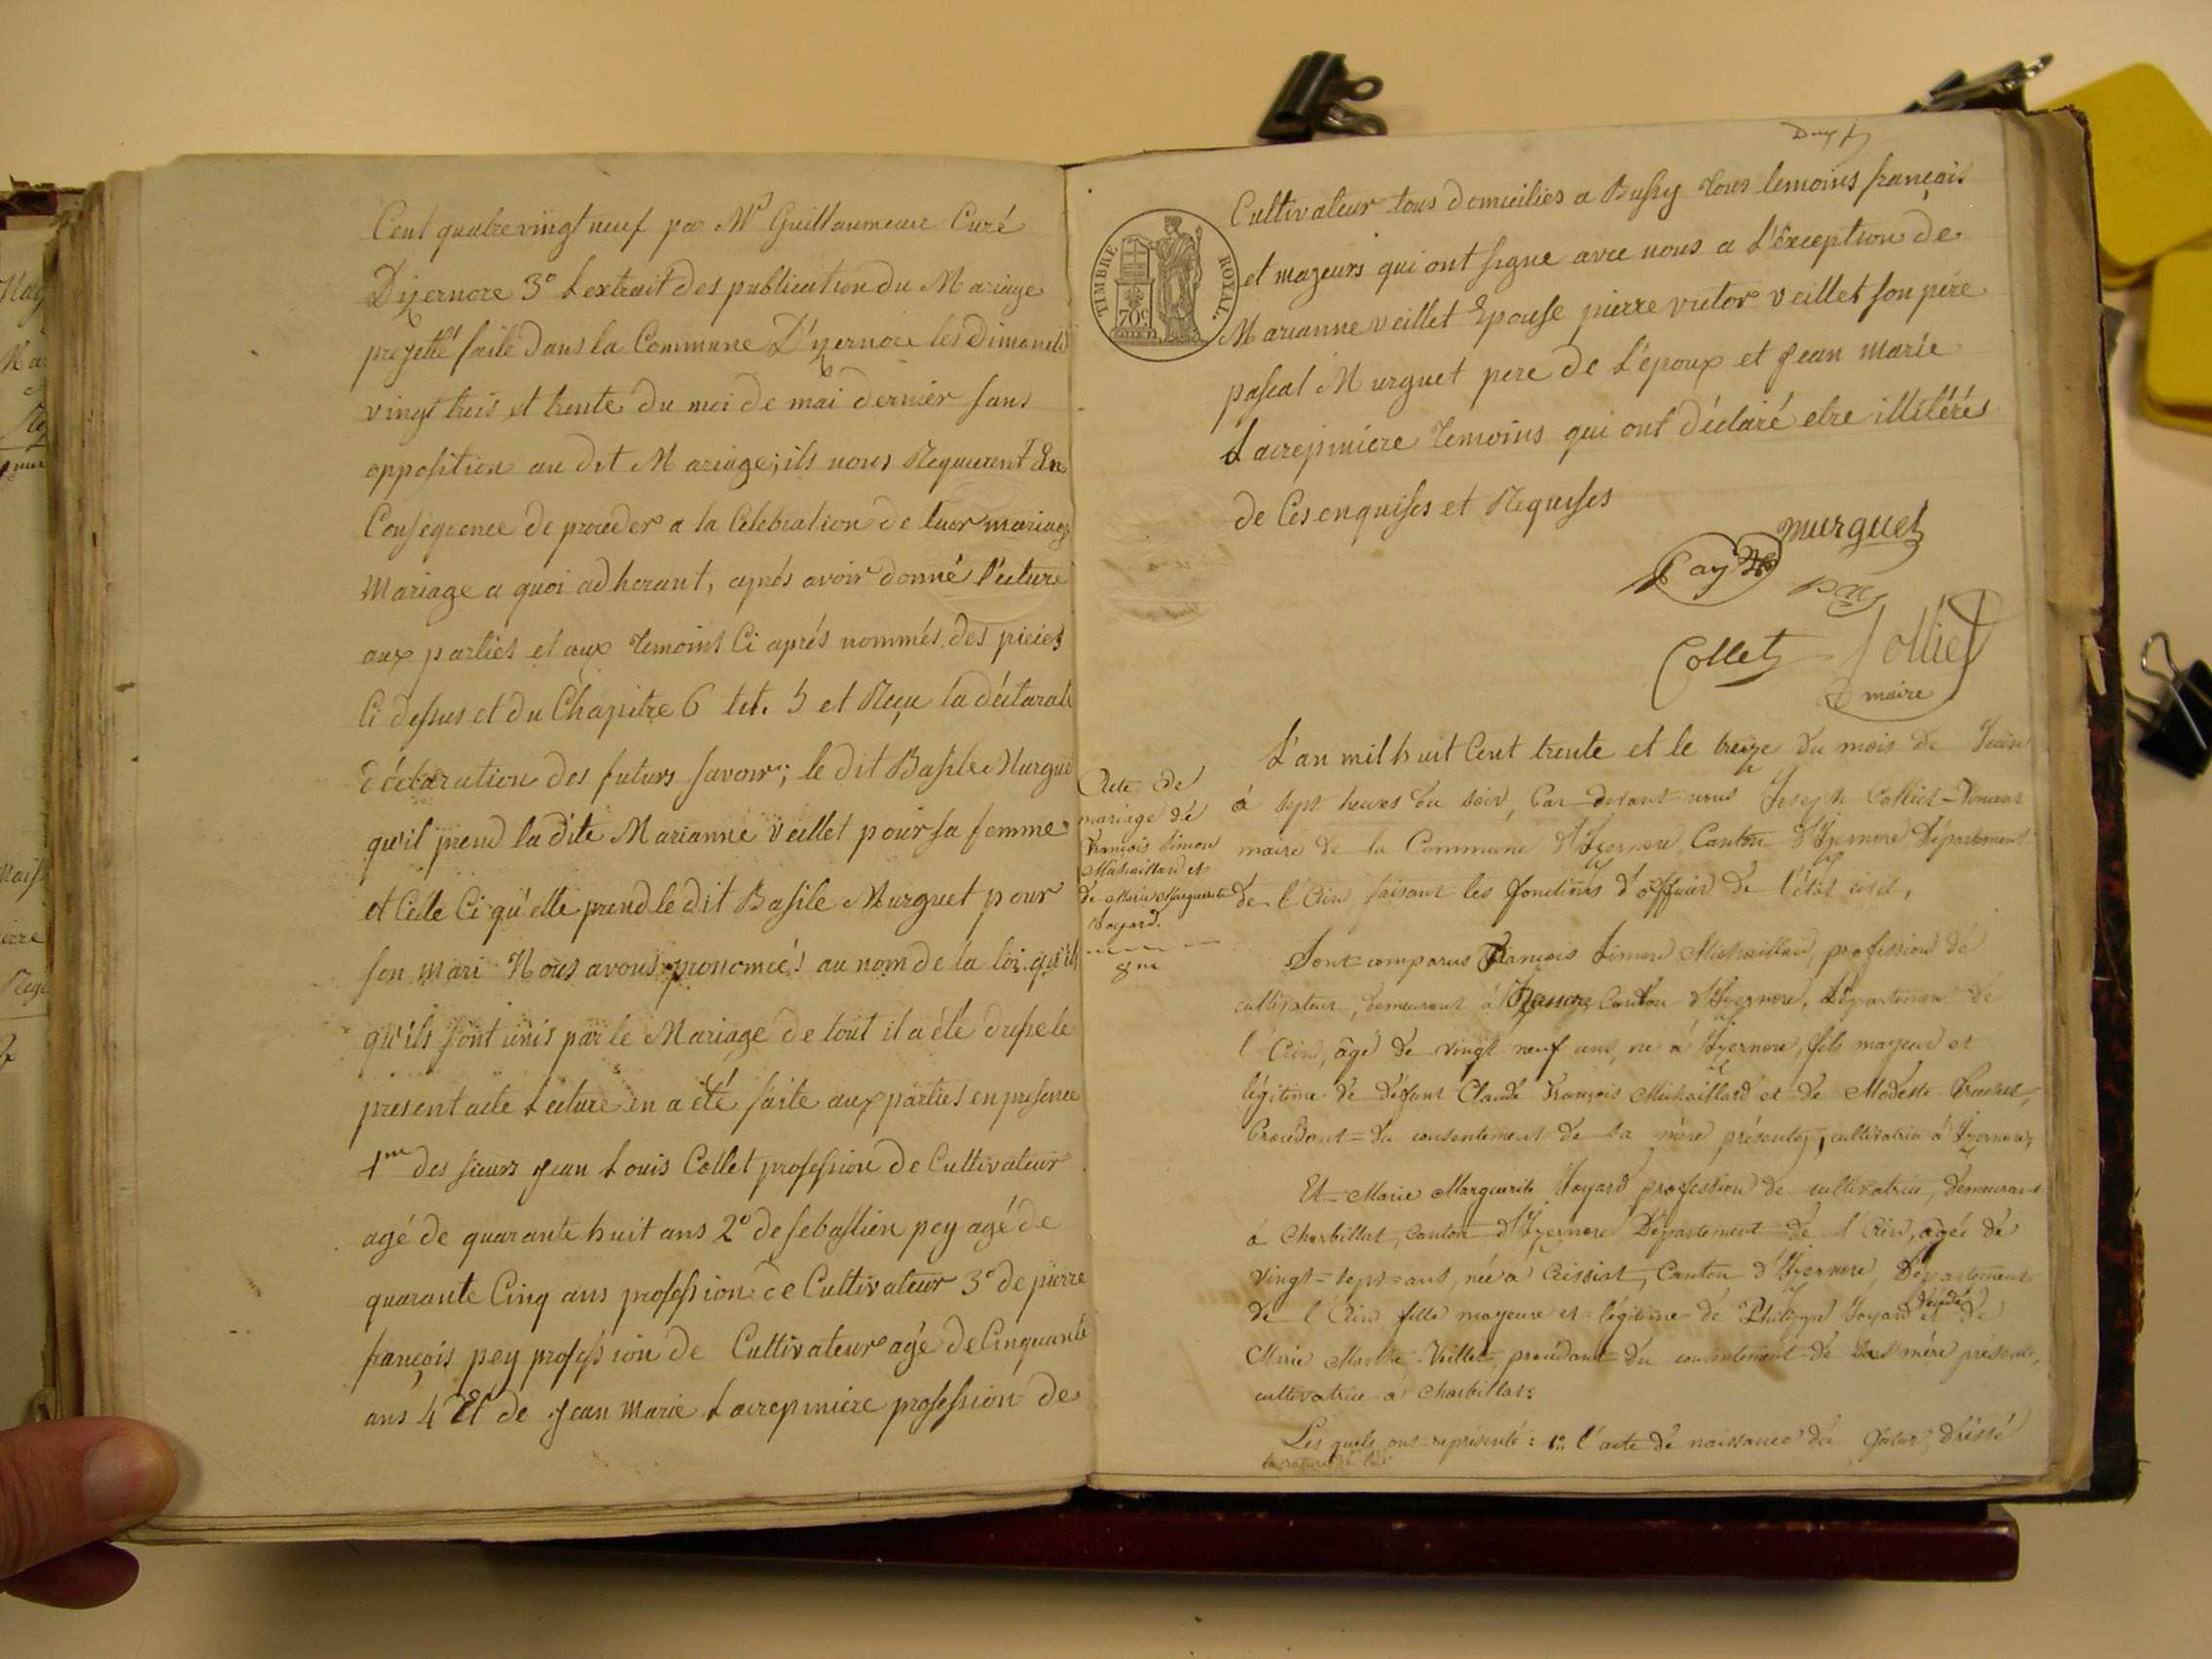 Cent quatre vingt neuf par Mr Guillaumeau Curé
D'yzernore 3° L'extrait des publication du Mariage
projetté faite dans la Commune D'yzernore les dimanche
vingt trois et trente du moi de mai dernier sans
opposition au dit Mariage; ils nous Requierent En
Conséquence de proceder a la Célébration de leur mariage
Mariage a quoi adherant, aprés avoir donné l'ecture
aux parties et aux temoins Ci aprés nommés des pieces
Ci dessus et du Chapitre 6 tit. 5 et Reçu la déclarati
déclaration des futurs savoir; le dit Basile Murguet
qu'il prend la dite Marianne Veillet pour sa femme
et Celle Ci qu'elle prend le dit Basile Murguet pour
son mari Nous avons prononcés au nom de la loi qu'ils
qu'ils sont unis par le Mariage de tout il a été dressé le
present acte Lecture en a été faite aux parties en presence
1me des sieurs Jean Louis Collet profession de Cultivateur
agé de quarante huit ans 2° de sebastien pey agé de
quarante Cinq ans profession de Cultivateur 3° de pierre
françois pey profession de Cultivateur agé de Cinquante
ans 4 Et de Jean Marie Lacrepiniere profession de
Cultivateur tous domiciliés a Bussy tous temoins français
et majeurs qui ont signe avec nous a L'éxception de
Marianne veillet Epouse pierre victor veillet son pére
TIMBRE ROYAL
70c
pascal Murguet pere de L'époux et Jean marie
Lacrepiniere temoins qui ont déclaré etre illitérés
de Ces enquises et Requises
murguet
Pay
Collet
Colliet
maire
Acte de
mariage de
François Simon
Michaillard et
de Marie Marguerite
Joyard.
8me
L'an mil huit Cent trente et le treize du mois de Juin
à sept heures du soir, Par devant nous Joseph Colliet-
maire de la Commune d'Izernore, Canton d'Izernore Département
de l'Ain faisant les fonctions d'officier de l'état civil,
Sont comparus François Simon Michaillard, profession de
cultivateur, demeurant à Izernore Canton d'Izernore, Département de
l'Ain, âgé de vingt neuf ans, né à Izernore, fils majeur et
légitime de défunt Claude François Michaillard et de Modeste
Procédant = du consentement de sa mère présente, cultivatrice à Izernore,
Et Marie Marguerite Joyard profession de cultivatrice, demeurant
à Charbillat, Canton d'Izernore Département de l'Ain, âgée de
vingt = sept = ans, née à Ceissiat, Canton d'Izernore, Département
de l'Ain fille majeure et légitime de Philippe Joyard décédé et de
Marie Marthe Veillet, procédant du consentement de sa mère présente,
cultivatrice à Charbillat:
Les quels ont représenté: 1° l'acte de naissance du futur, dressé